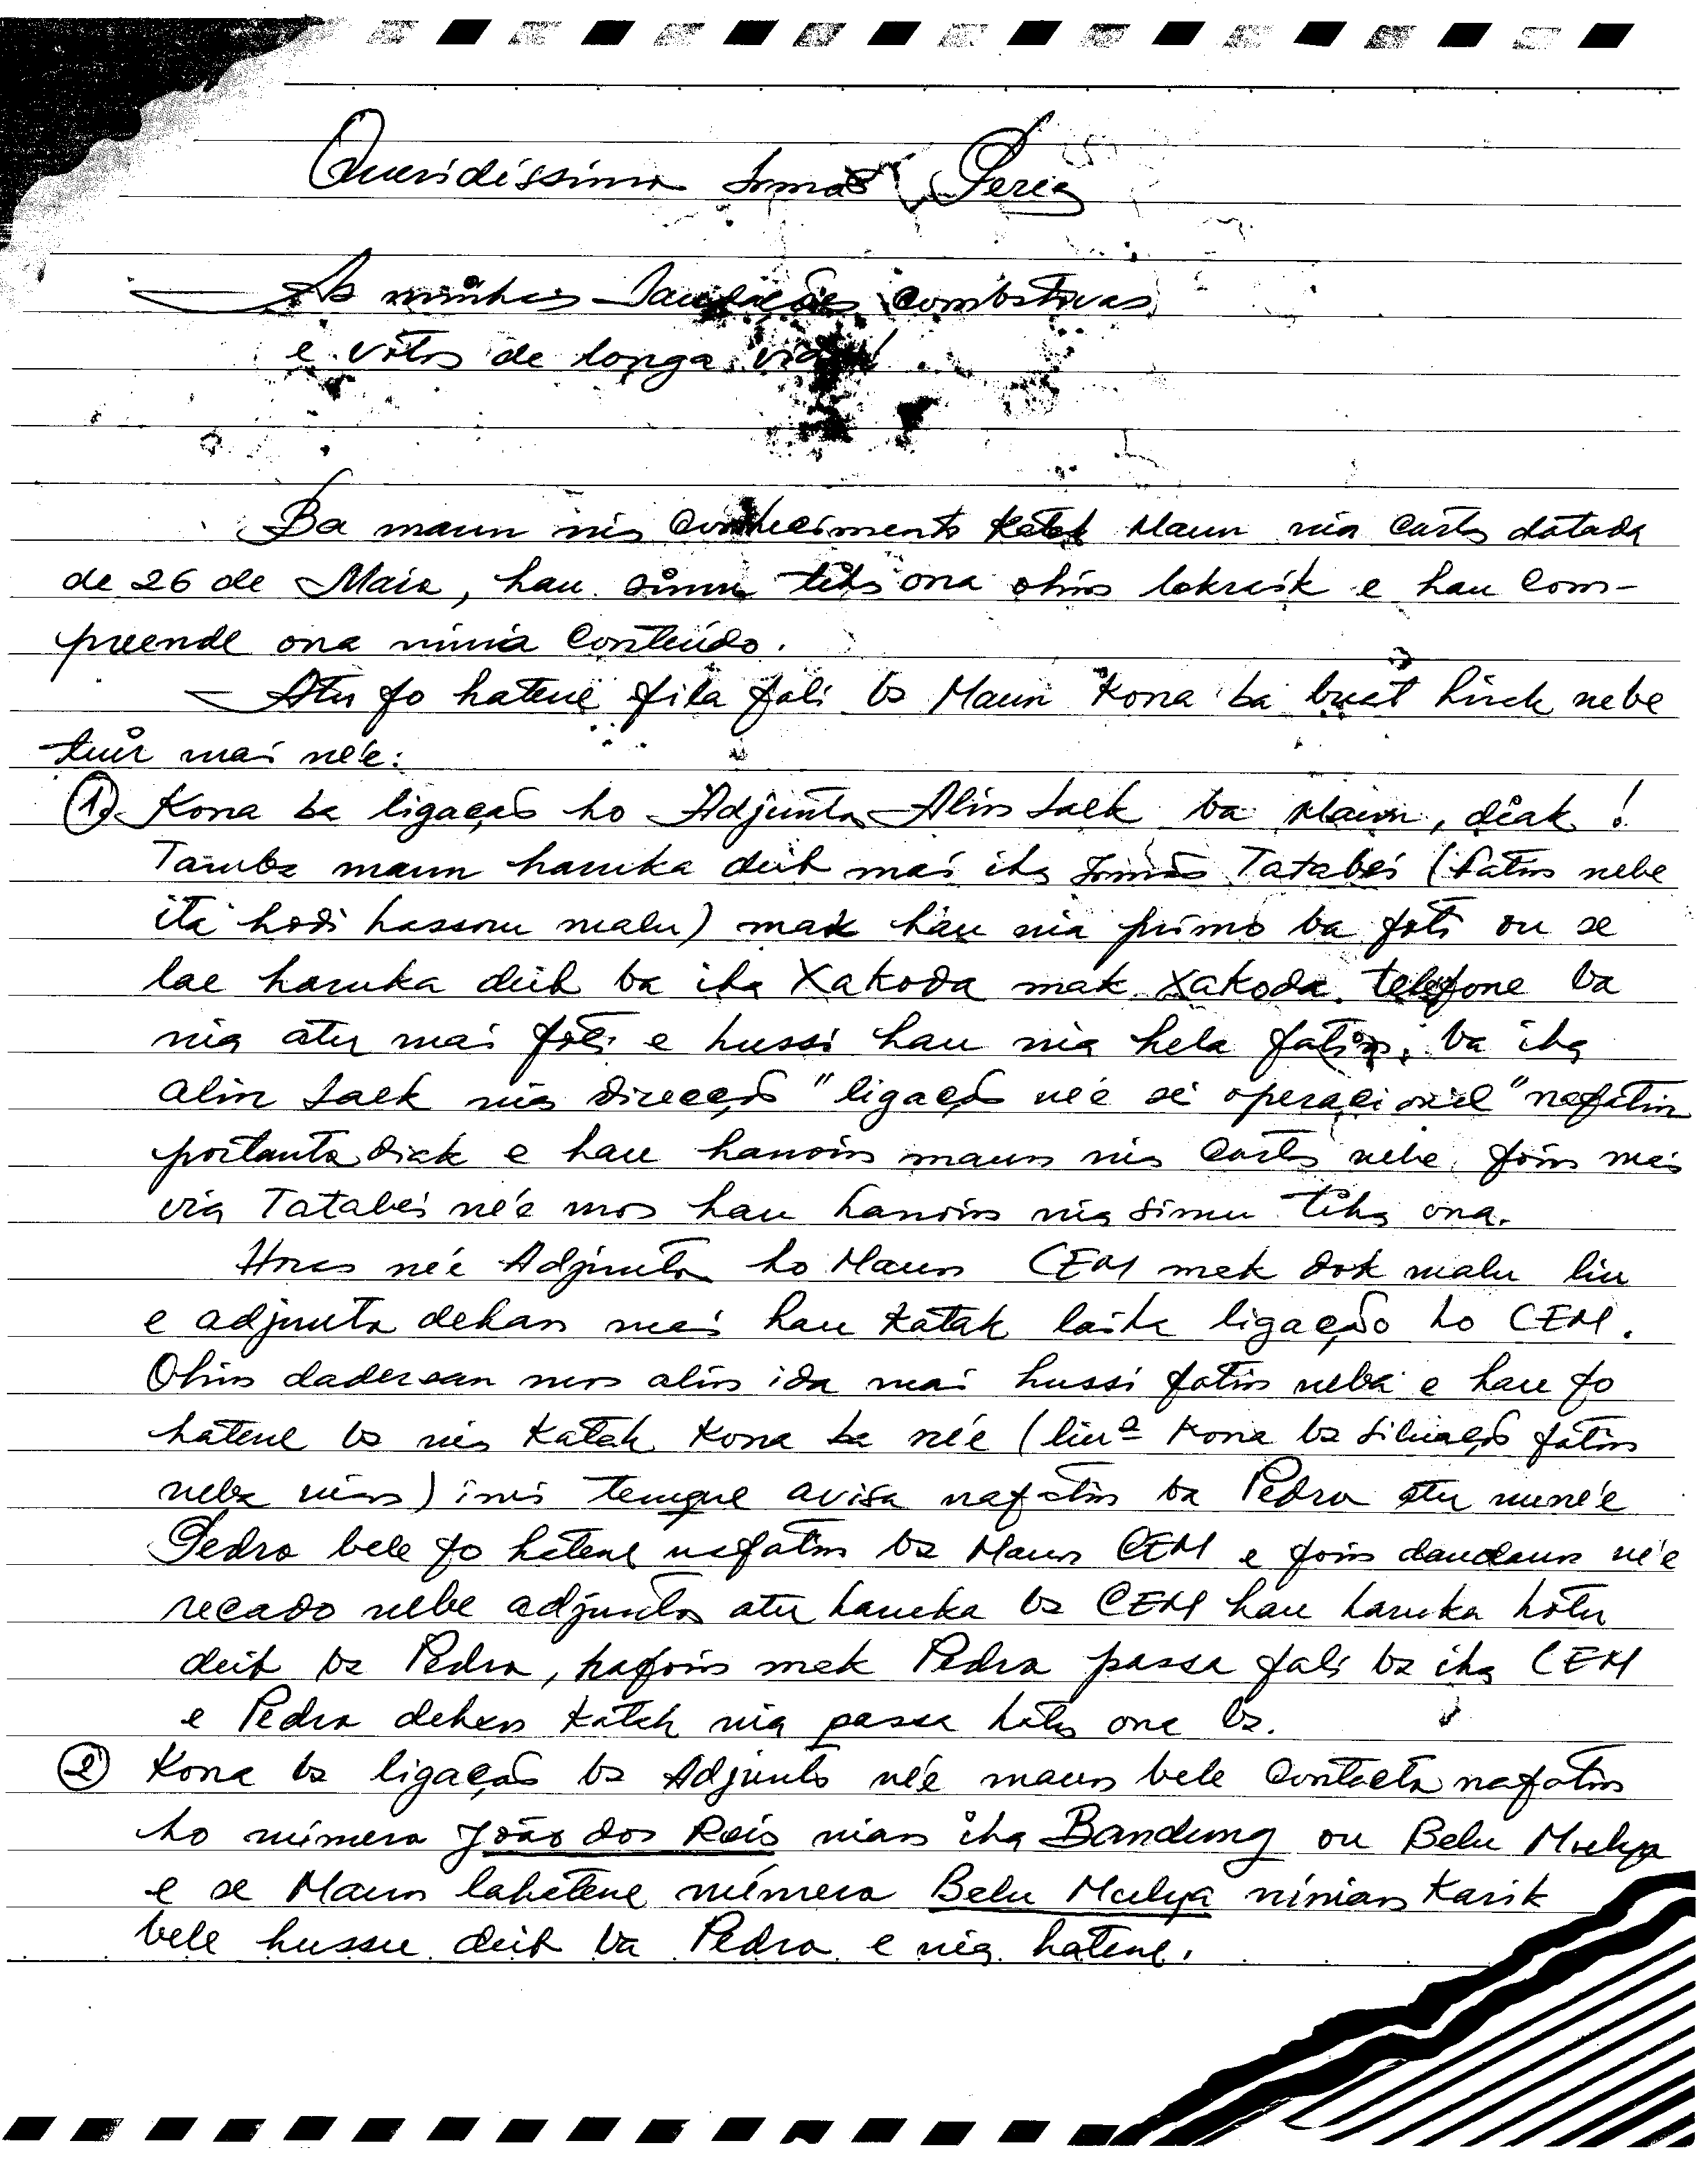 Queridíssimo Irmão Pereg
As minhas Saudações Combativas
e votos de longa vida!
Ba maun nia Conhecimento Katak Maun nia Carta datada
de 26 de Maio, hau simu tiha ona ohin lokraik e hau Com-
preende ona ninia Conteúdo.
Atu fo hatene fila fali ba Maun Kona ba buat hirak nebe
tuir mai né'e:
1) Kona ba ligação ho Adjunto Alin Laek ba Maun, diak!
Tamba maun haruka deit mai iha Irmão Tatabei (fatin nebe
ita hodi hassoru malu) mak hau nia primo ba foti ou se
lae haruka deit ba iha Xakoda mak Xakoda telefone ba
nia atu mai foti e hussi hau nia hela fatin, ba iha
alin Laek nia direcção "ligação né'e sei operacional" nafatin
portanto diak e hau hanoin maun nia Carta nebe foin mai
via Tatabei né'e mos hau hanoin nia simu tiha ona.
Horas né'e Adjunto ho Maun CEM mak dok malu liu
e adjunto dehan mai hau Katak laiha ligação ho CEM.
Ohin dadersan mos alin ida mai hussi fatin neba e hau fo
hatene ba nia Katak Kona ba né'e (liuª Kona ba Situação fatin
neba nian) nia tenque avisa nafatin ba Pedro atu nuné'e
Pedro bele fo hatene nafatin ba Maun CEM e foin daudaun né'e
recado nebe adjunto atu haruka ba CEM hau haruka hotu
deit ba Pedro, hafoin mak Pedro passa fali ba iha CEM
e Pedro dehan Katak nia passa hotu ona ba.
2) Kona ba ligação ba Adjunto né'e maun bele Contacto nafatin
ho número João dos Reis nian iha Bandung ou Belu Mulya
e se Maun lahatene número Belu Mulya ninian Karik
bele hussu deit ba Pedro e nia hatene.